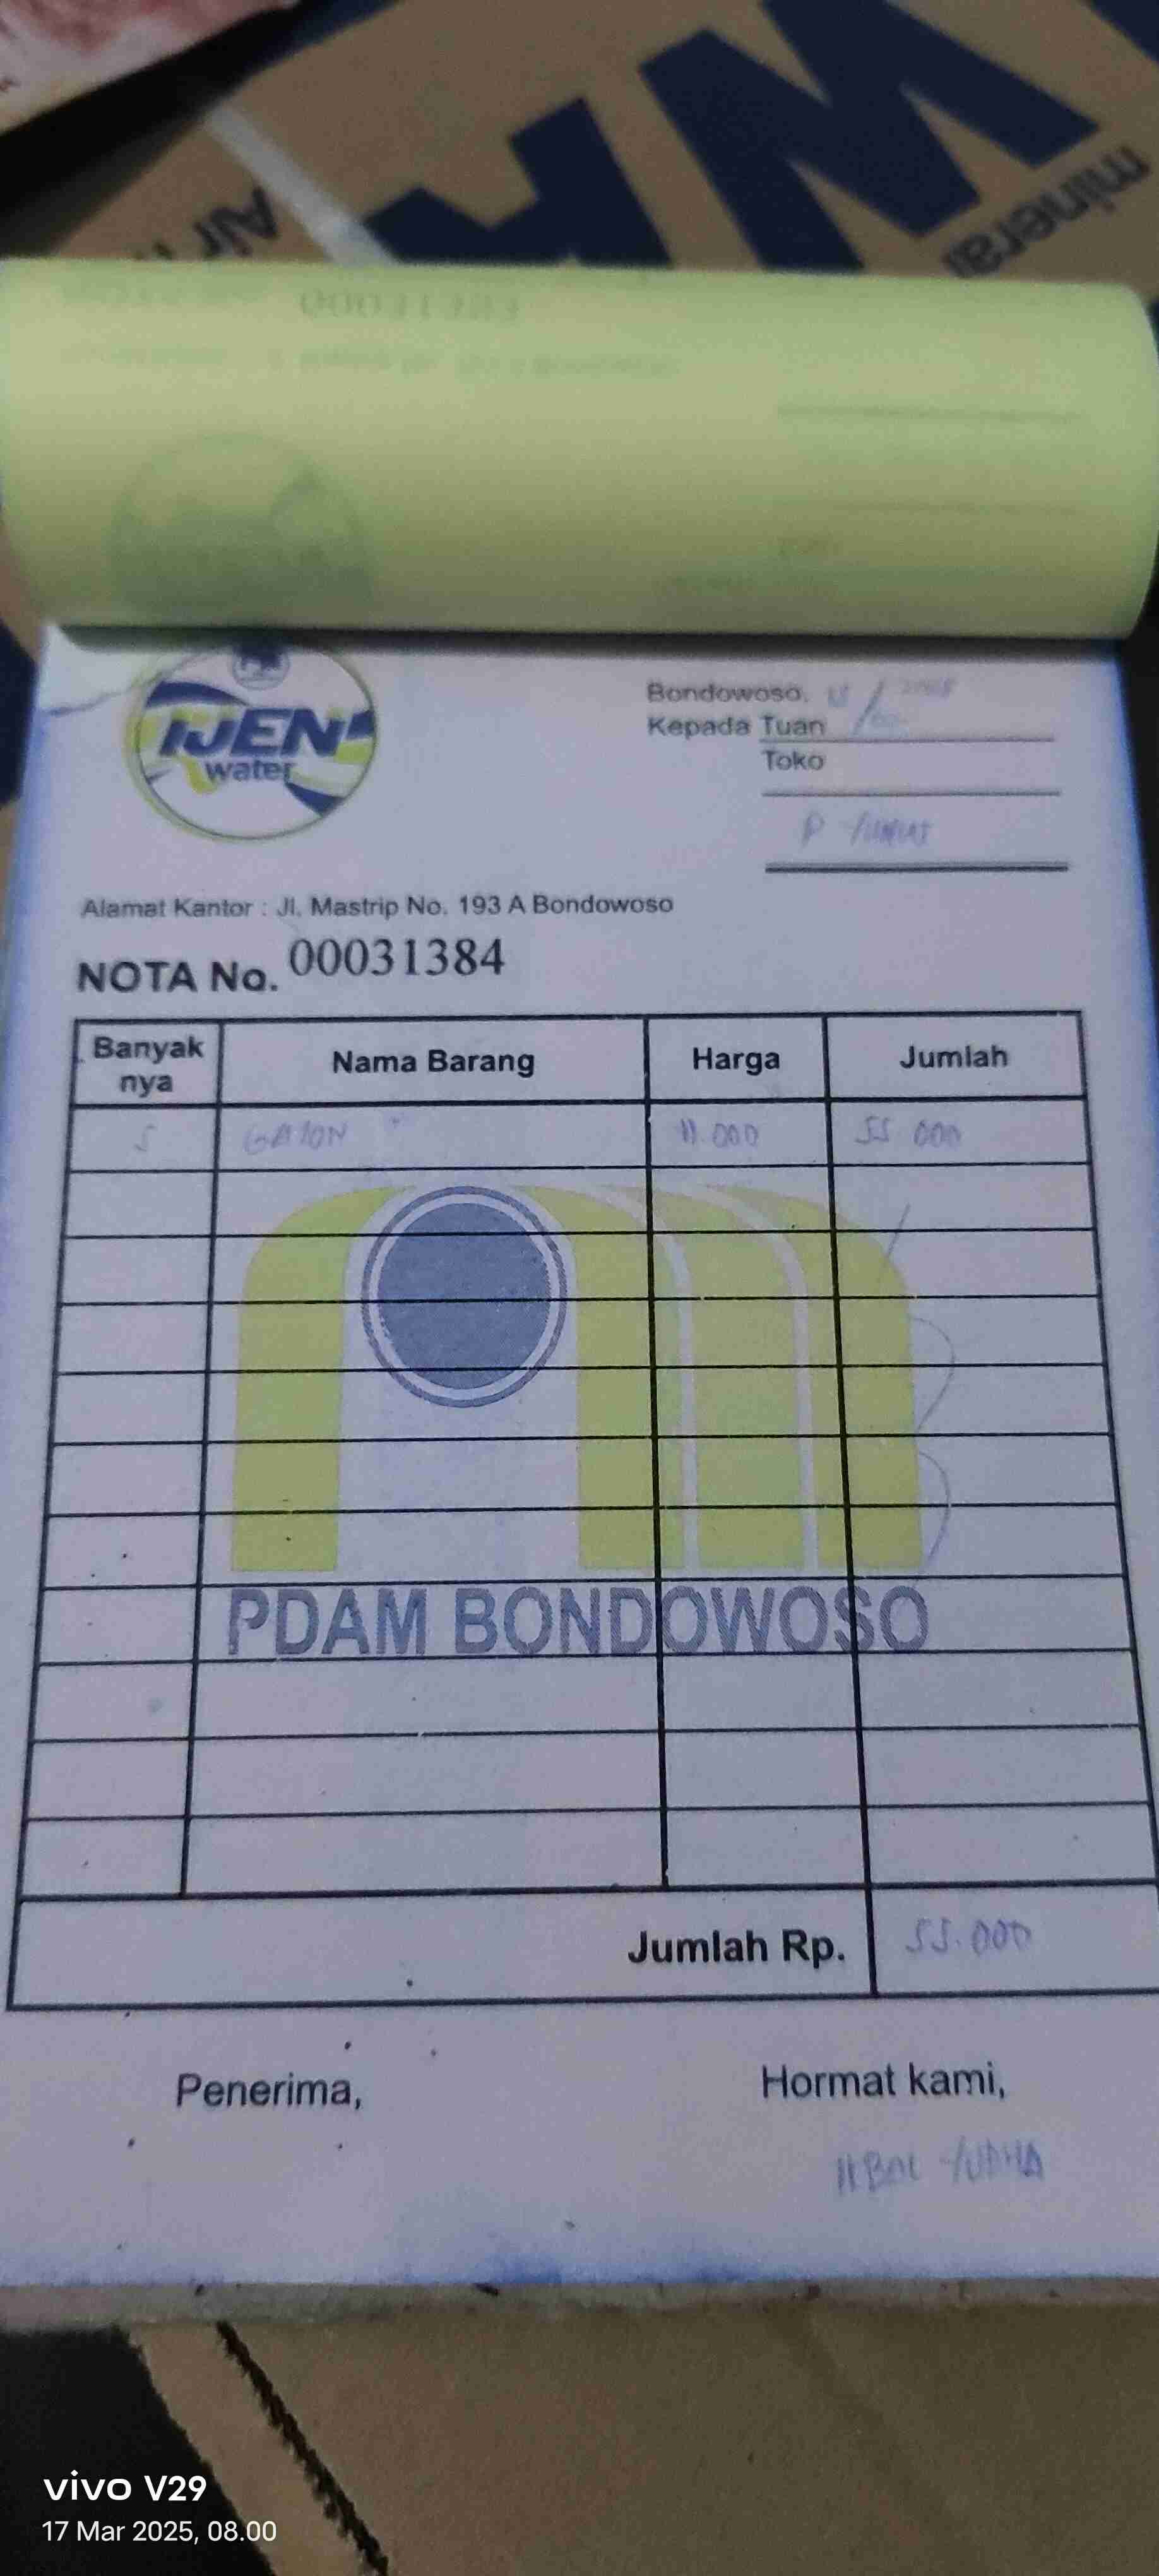 mineral
Air
00031383
IJEN
water
Bondowoso,
Kepada Tuan
Toko
P
Alamat Kantor : Jl. Mastrip No. 193 A Bondowoso
NOTA No. 00031384
Banyak nya Nama Barang Harga Jumlah
5 GALON 11.000 55 000
PDAM BONDOWOSO
Jumlah Rp. 55.000
Penerima, Hormat kami,
YUDHA
vivo V29
17 Mar 2025, 08.00